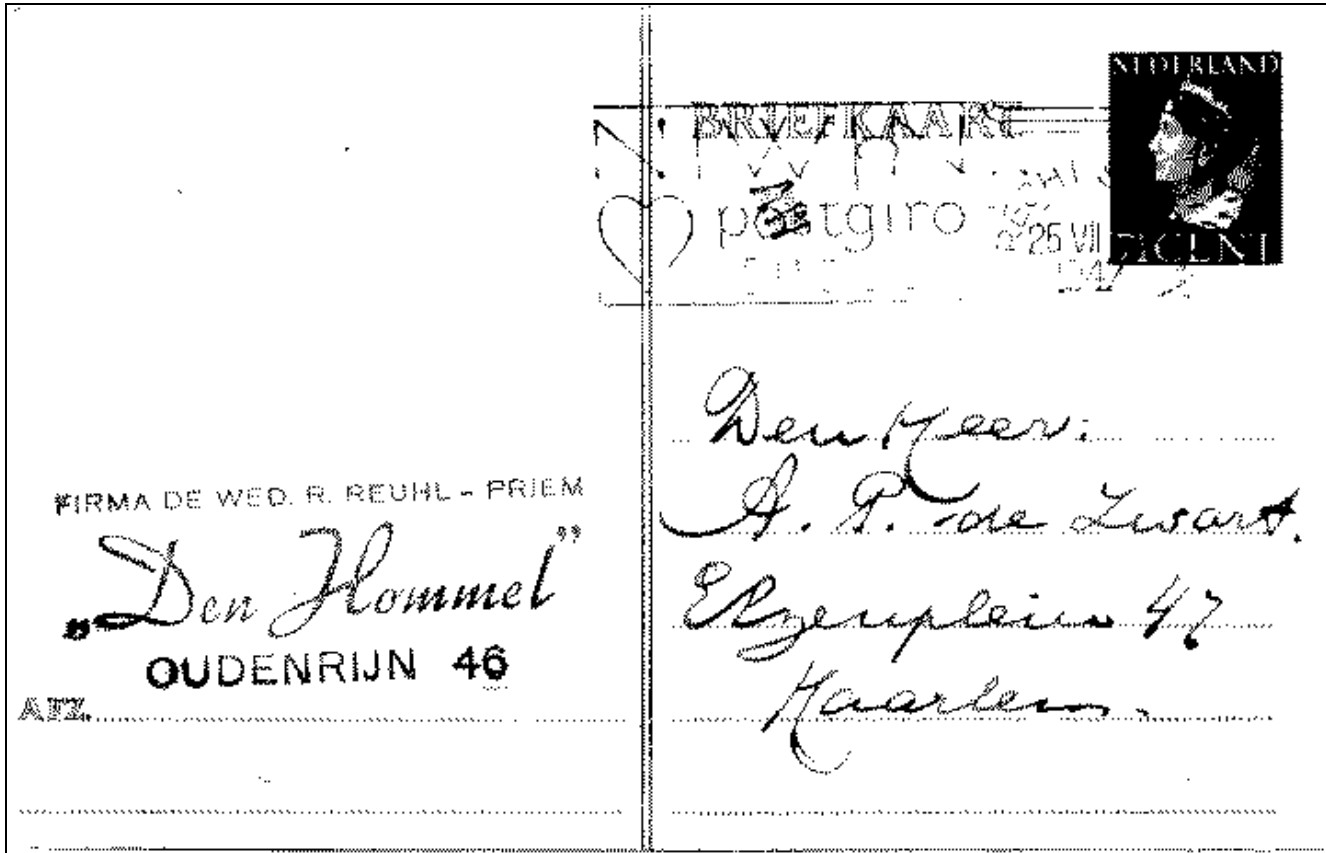 NEDERLAND
BRIEFKAART
postgiro
25 VII
1947
CENT
FIRMA DE WED. R. REUHL - PRIEM
„Den Hommel”
OUDENRIJN 46
AFZ.
Den Heer:
A. P. de Zwart.
Elzenplein 47
Haarlem.